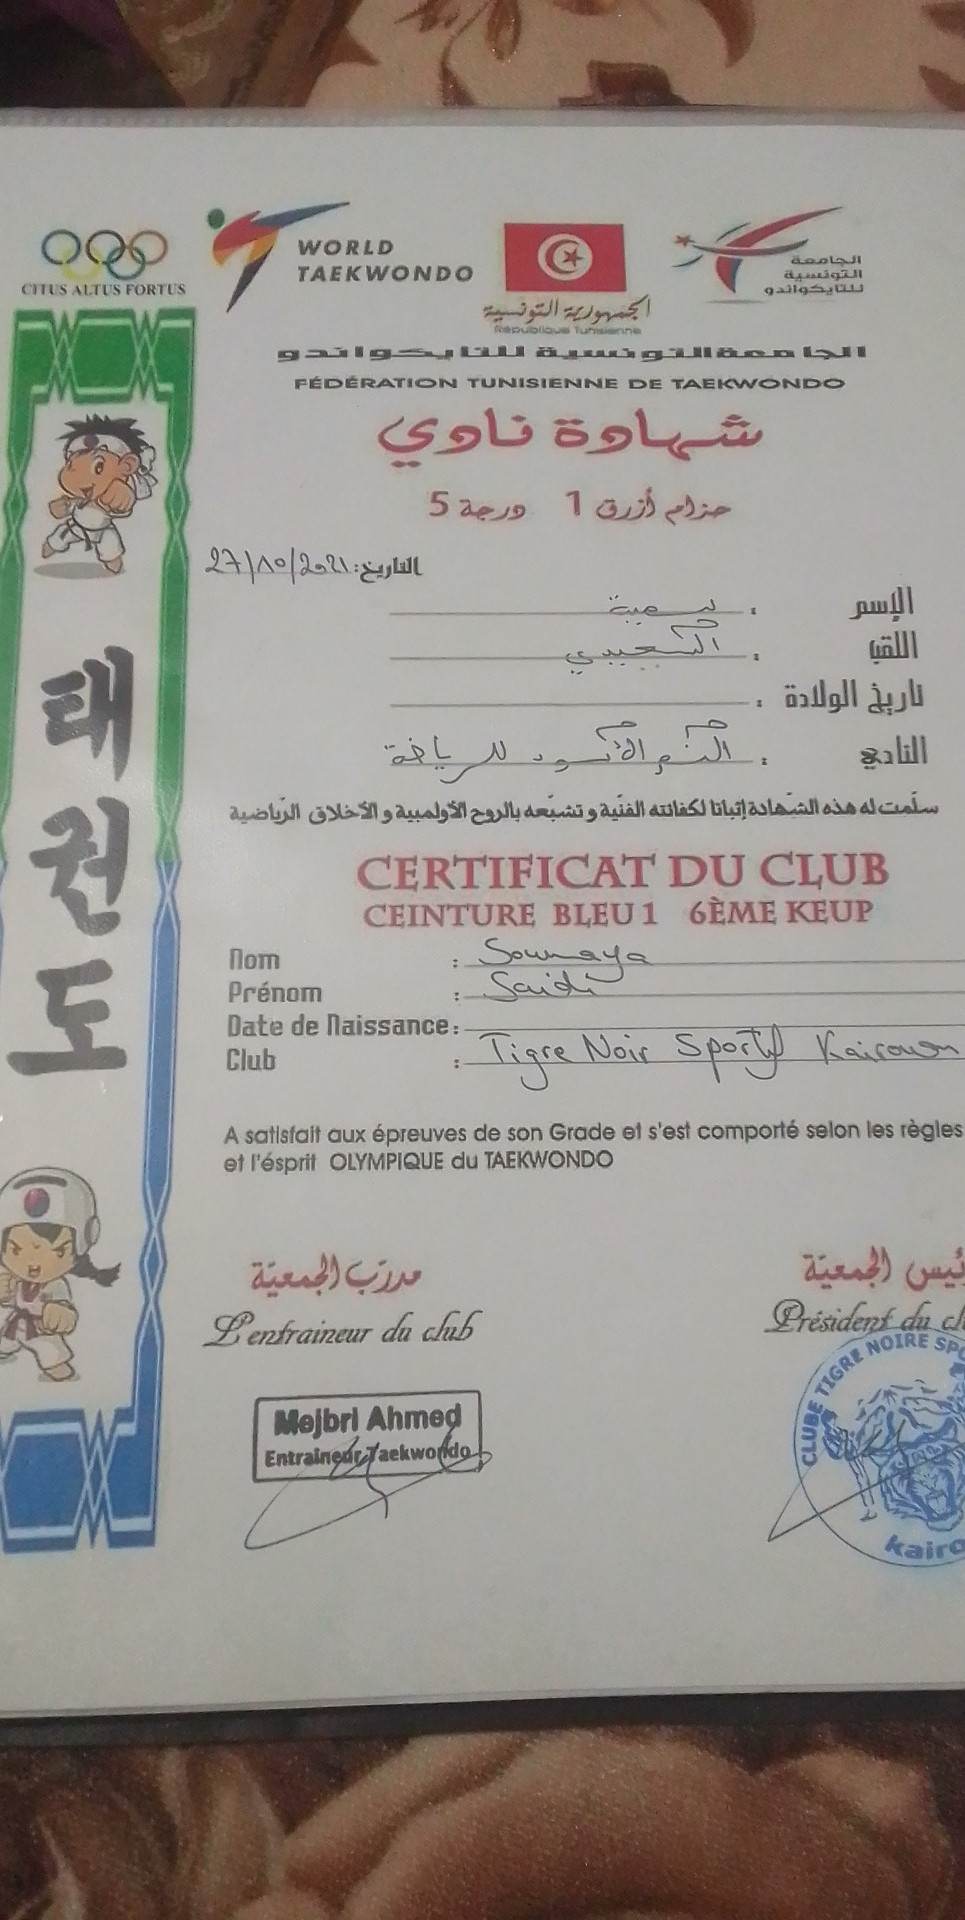 CITUS ALTUS FORTUS
WORLD
TAEKWONDO
الجمهورية التونسية
République Tunisienne
الجامعة
التونسية
للتايكواندو
الجامعة التونسية للتايكواندو
FÉDÉRATION TUNISIENNE DE TAEKWONDO
شهادة نادي
حزام أزرق 1 درجة 5
التاريخ: 27/10/2021
الإسم : سمية
اللقب :
تاريخ الولادة :
النادي : النمر الأسود للرياضة
سلّمت له هذه الشّهادة إثباتا لكفائته الفنّية و تشبّعه بالروح الأولمبية و الأخلاق الرّياضية
CERTIFICAT DU CLUB
CEINTURE BLEU 1 6ÈME KEUP
Nom : Soumaya
Prénom : Saidi
Date de Naissance :
Club : Tigre Noir Sportif Kairouan
A satisfait aux épreuves de son Grade et s'est comporté selon les règles
et l'ésprit OLYMPIQUE du TAEKWONDO
مدرّب الجمعيّة
L'entraineur du club
ئيس الجمعيّة
Président du cl
Mejbri Ahmed
Entraineur Taekwondo
CLUBE TIGRE NOIRE SPO
kairo
태권도